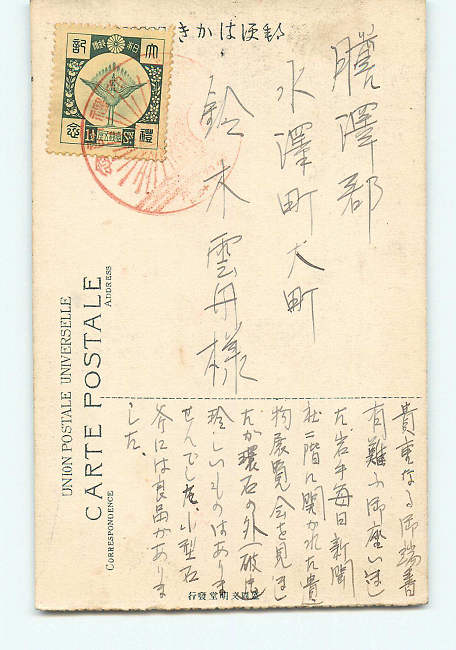 郵便はかき
大禮
記念
膽澤郡
水澤町大町
鈴木雲 様
UNION POSTALE UNIVERSELLE
CARTE POSTALE
ADDRESS
CORRESPONDENCE
貴重なる御端書
有難ふ御座いまし
た、岩手毎日新聞
社二階に開かれた
物展覧会を見まし
たが環石の外
珍しいものはありま
せんでした、小型石
斧には良品がありま
した。
文明堂發行